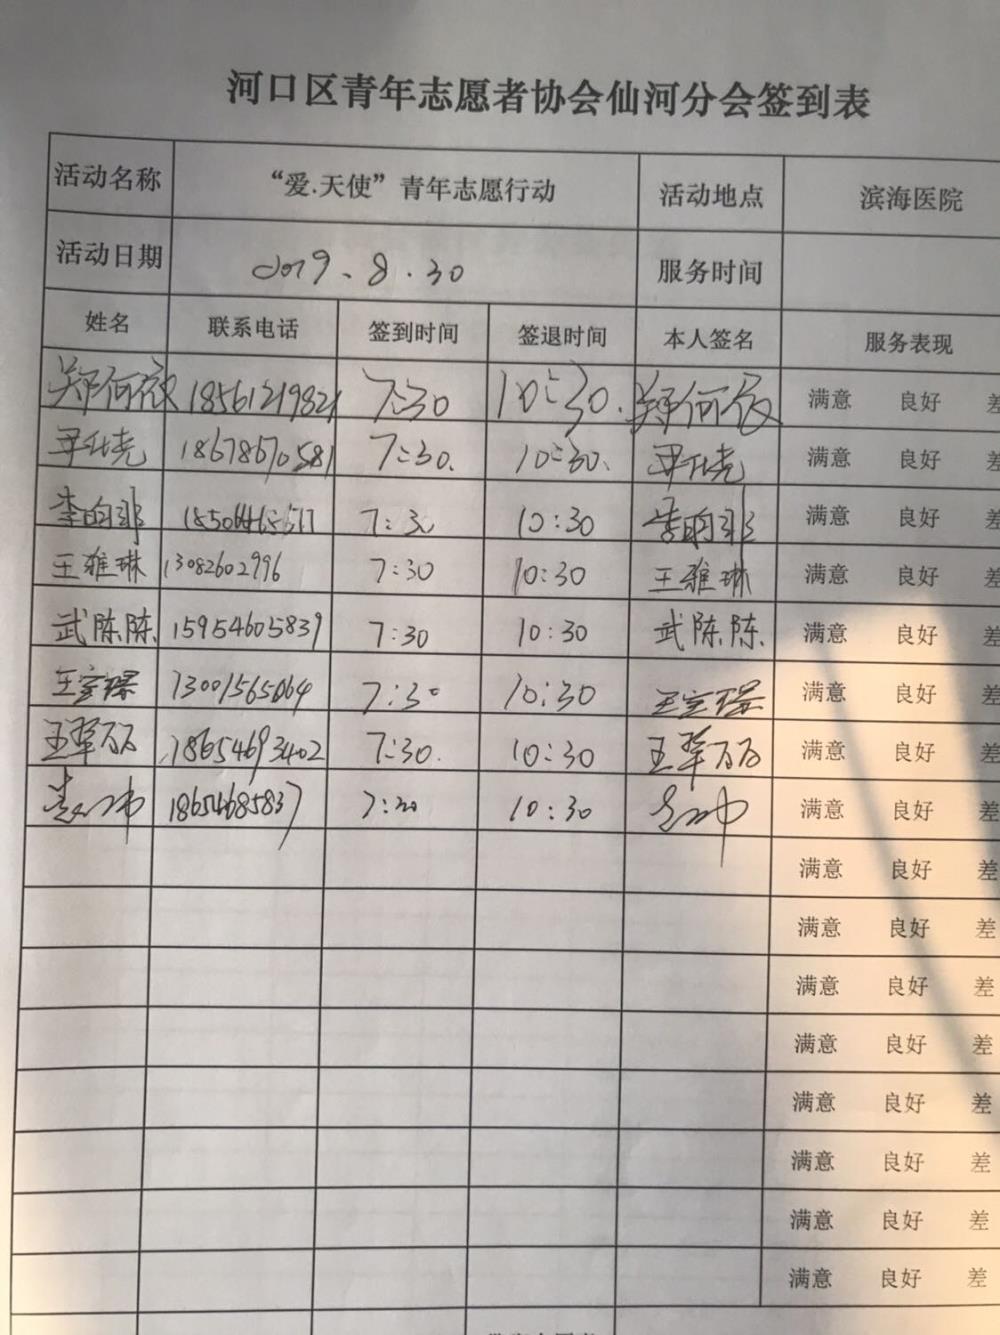 河口区青年志愿者协会仙河分会签到表
活动名称 “爱.天使”青年志愿行动 活动地点 滨海医院
活动日期 2019.8.30 服务时间
姓名 联系电话 签到时间 签退时间 本人签名 服务表现
郑何 18561219821 7:30 10:30. 郑何 满意 良好 差
18678670581 7:30. 10:30. 满意 良好 差
李昀邪 7:30 10:30 李昀邪 满意 良好 差
王雅琳 13082602996 7:30 10:30 王雅琳 满意 良好 差
武陈陈 15954605839 7:30 10:30 武陈陈 满意 良好 差
王 13001565064 7:30 10:30 王 满意 良好 差
王翠 18654693402 7:30. 10:30 王翠 满意 良好 差
18654685837 7:30 10:30 满意 良好 差
满意 良好 差
满意 良好 差
满意 良好 差
满意 良好 差
满意 良好 差
满意 良好 差
满意 良好 差
满意 良好 差